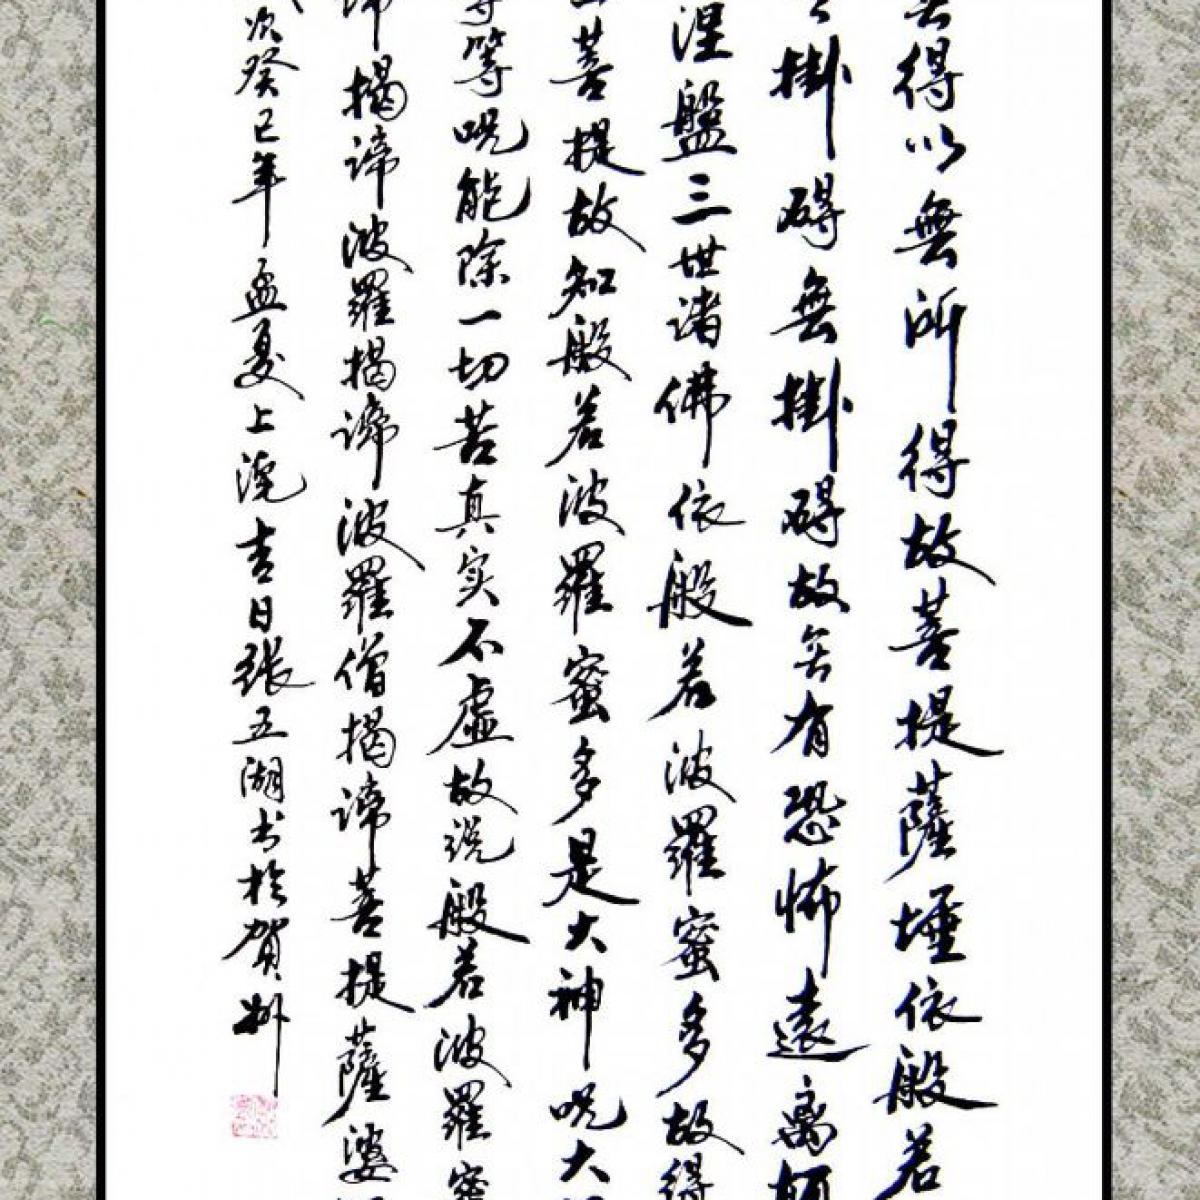 得以無所得故菩提薩埵依般若
掛礙無掛礙故無有恐怖遠離
涅盤三世諸佛依般若波羅蜜多故得
菩提故知般若波羅蜜多是大神咒大
等咒能除一切苦真实不虛故说般若波羅蜜
揭諦波羅揭諦波羅僧揭諦菩提薩婆
次癸巳年孟夏上浣吉日張五湖书於賀州